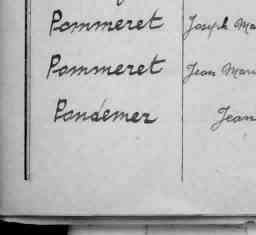 Pommeret Joseph Ma
Pommeret Jean Mari
Pondemer Jean